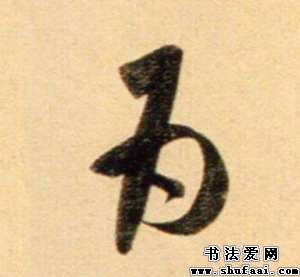 为
书法爱网
www.shufaai.com